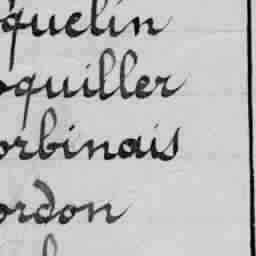 quelin
oquiller
orbinais
ordon